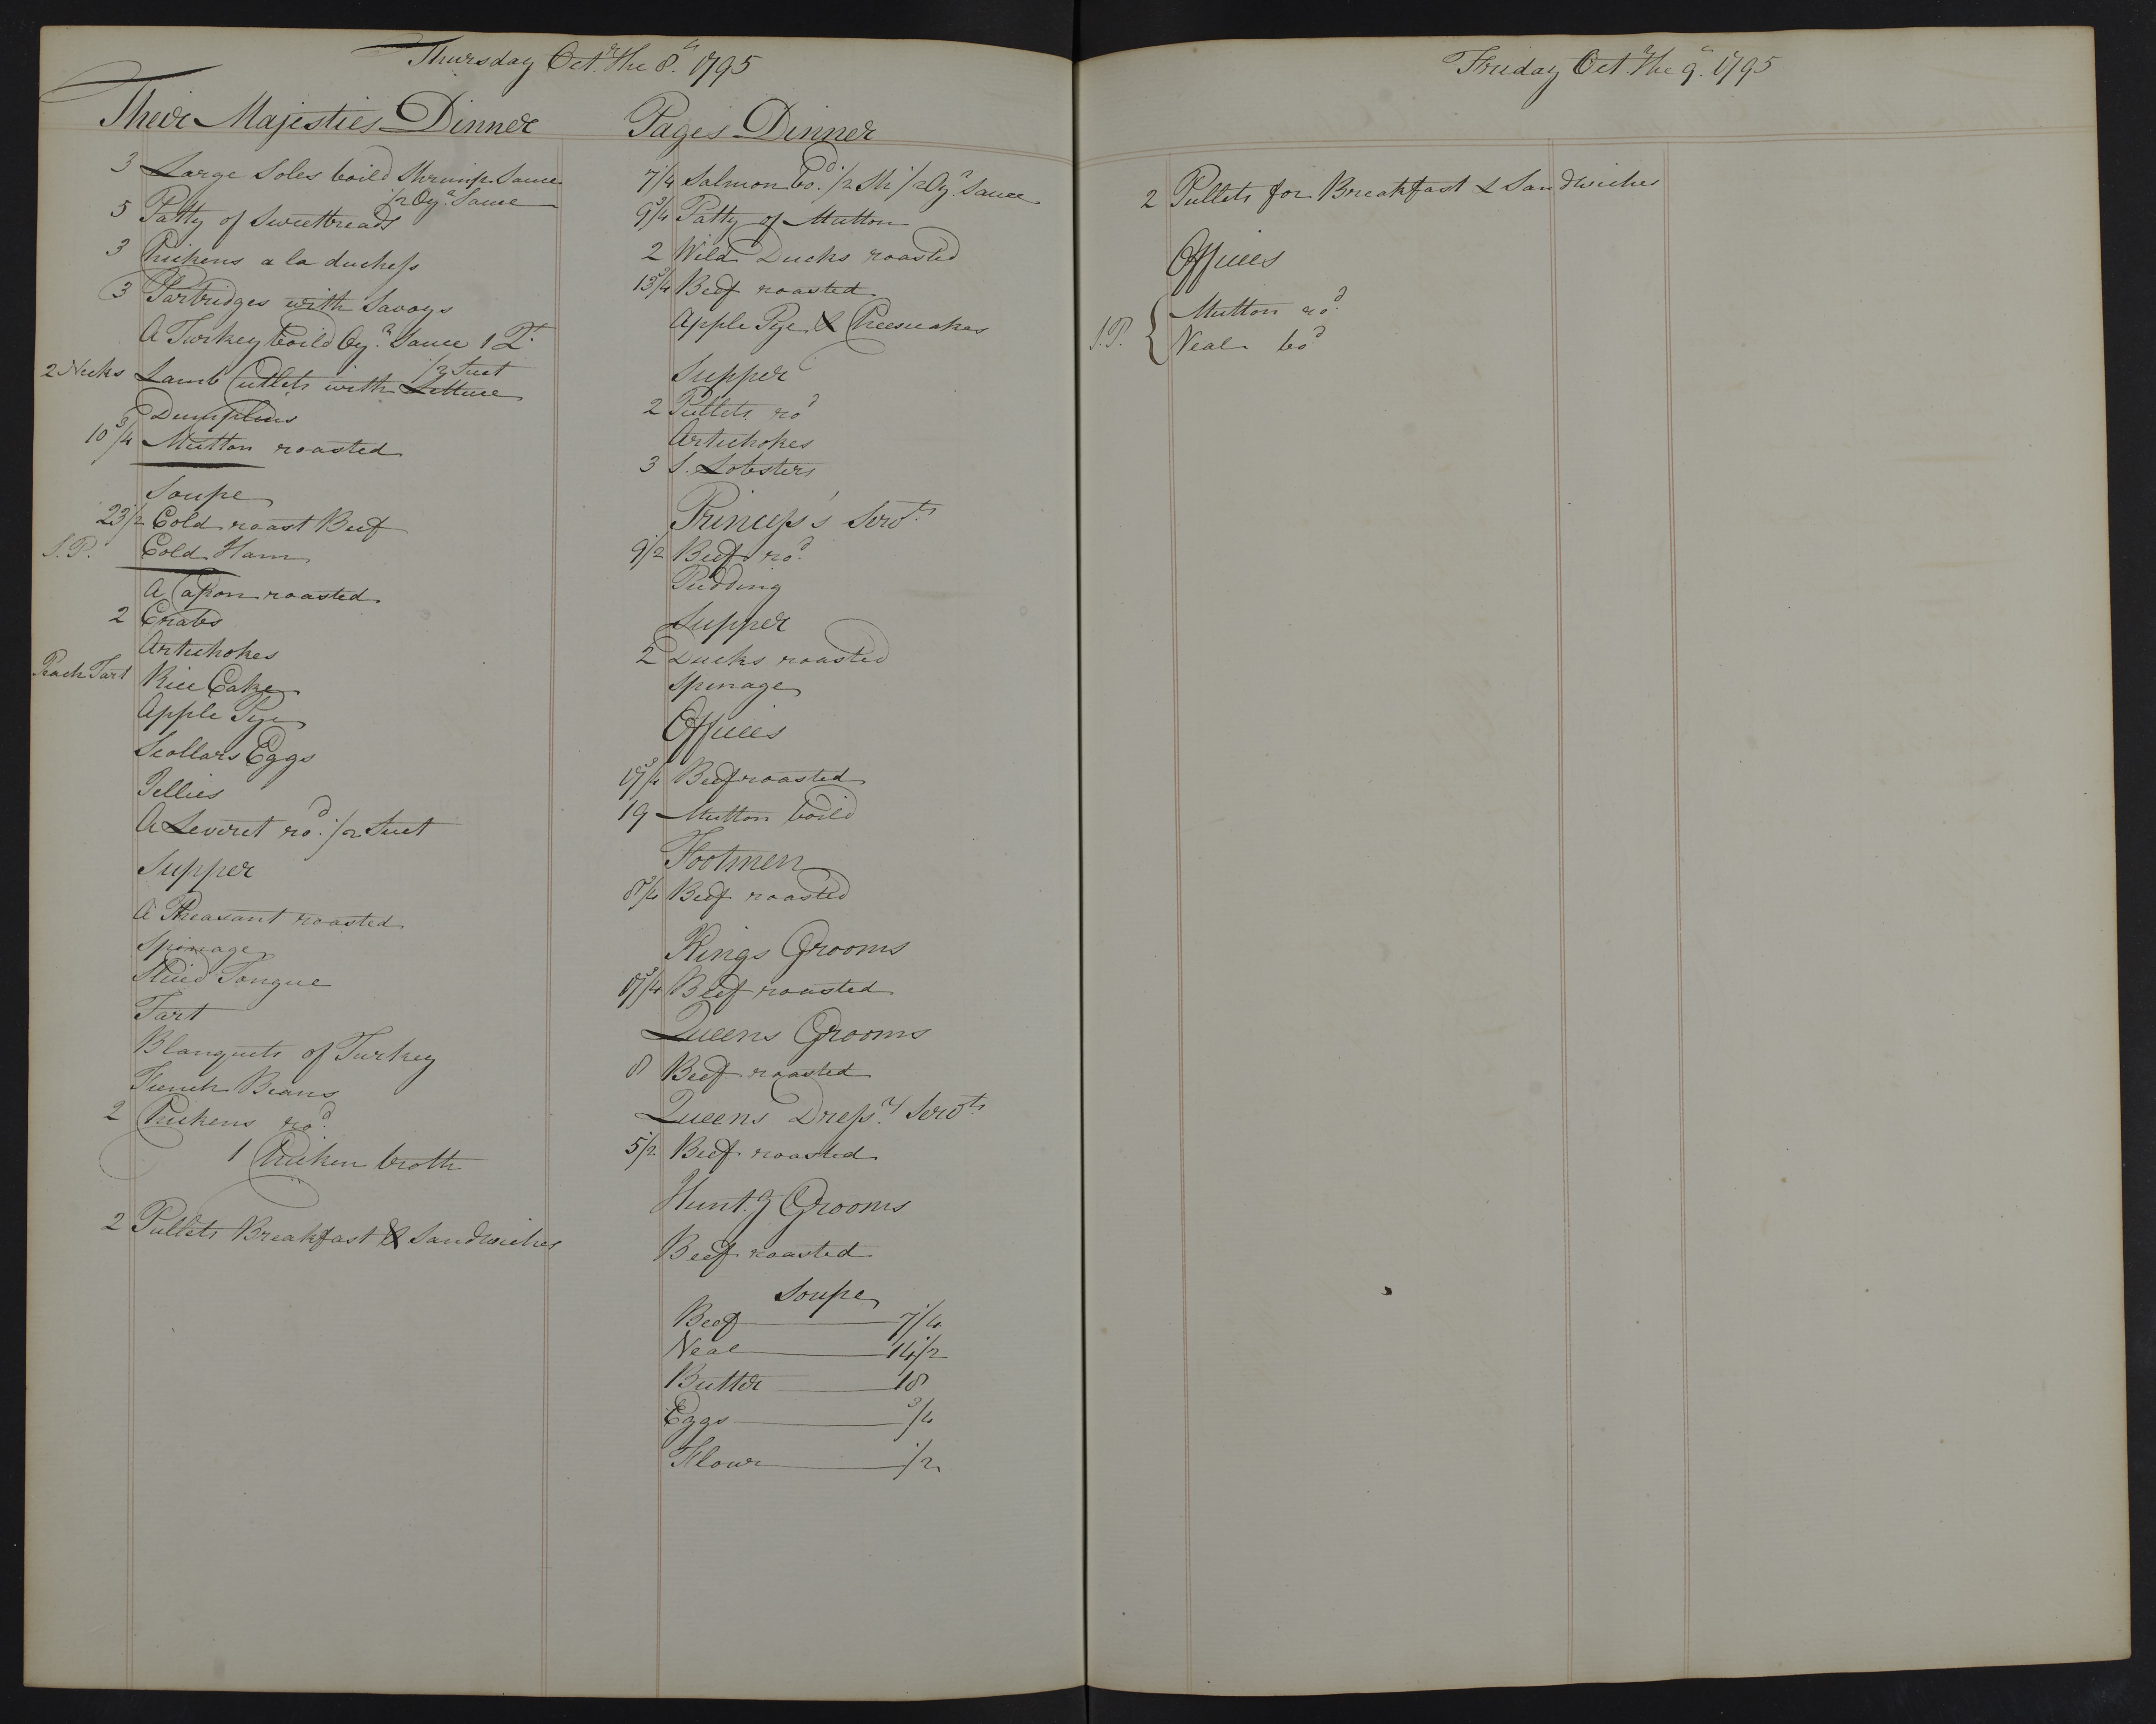 Thursday Octr. the 8th. 1795
Their Majesties Dinner
3 Large Soles boild Shrimp Sauce
1/2 Oyr. Sauce
5 Patty of Sweetbreads
3 Chickens a la duchess
3 Partridges with Savoys
A Turkey boild Oyr. Sauce 1 Qt.
1/2 Suet
2 Necks Lamb Cutlets with Lettuce
Dumplins
10 3/4 Mutton roasted
Soupe
23 1/2 Cold roast Beef
S.P. Cold Ham
A Capon roasted
2 Crabs
Artichokes
Peach Tart Rice Cake
Apple Pye
Scollars Eggs
Jellies
A Leveret rod. 1/2 Suet
Supper
A Pheasant roasted
Spinage
Slic'd Tongue
Tart
Blanquets of Turkey
French Beans
2 Chickens rod.
1 Chicken broth
2 Pullets Breakfast & Sandwiches
Pages Dinner
7 1/4 Salmon bod. 1/2 Sh 1/2 Oyr. Sauce
9 3/4 Patty of Mutton
2 Wild Ducks roasted
13 3/4 Beef roasted
Apple Pye & Cheescakes
Supper
2 Pullets rod
Artichokes
3 S. Lobsters
Princess's Servts.
9 1/2 Beef rod.
Pudding
Supper
2 Ducks roasted
Spinage
Offices
Beef roasted
19 Mutton boild
Footmen
Beef roasted
Kings Grooms
Beef roasted
Queens Grooms
8 Beef roasted
Queens Dressrs. Servts.
5 1/2 Beef roasted
Huntg Grooms
Beef roasted
Soupe
Beef 7 1/4
Veal 14 1/2
Butter 18
Eggs 3/4
Flour 1/2
Friday Octr. the 9th. 1795
2 Pullets for Breakfast & Sandwiches
Offices
Mutton rod.
S.P. {
Veal bod